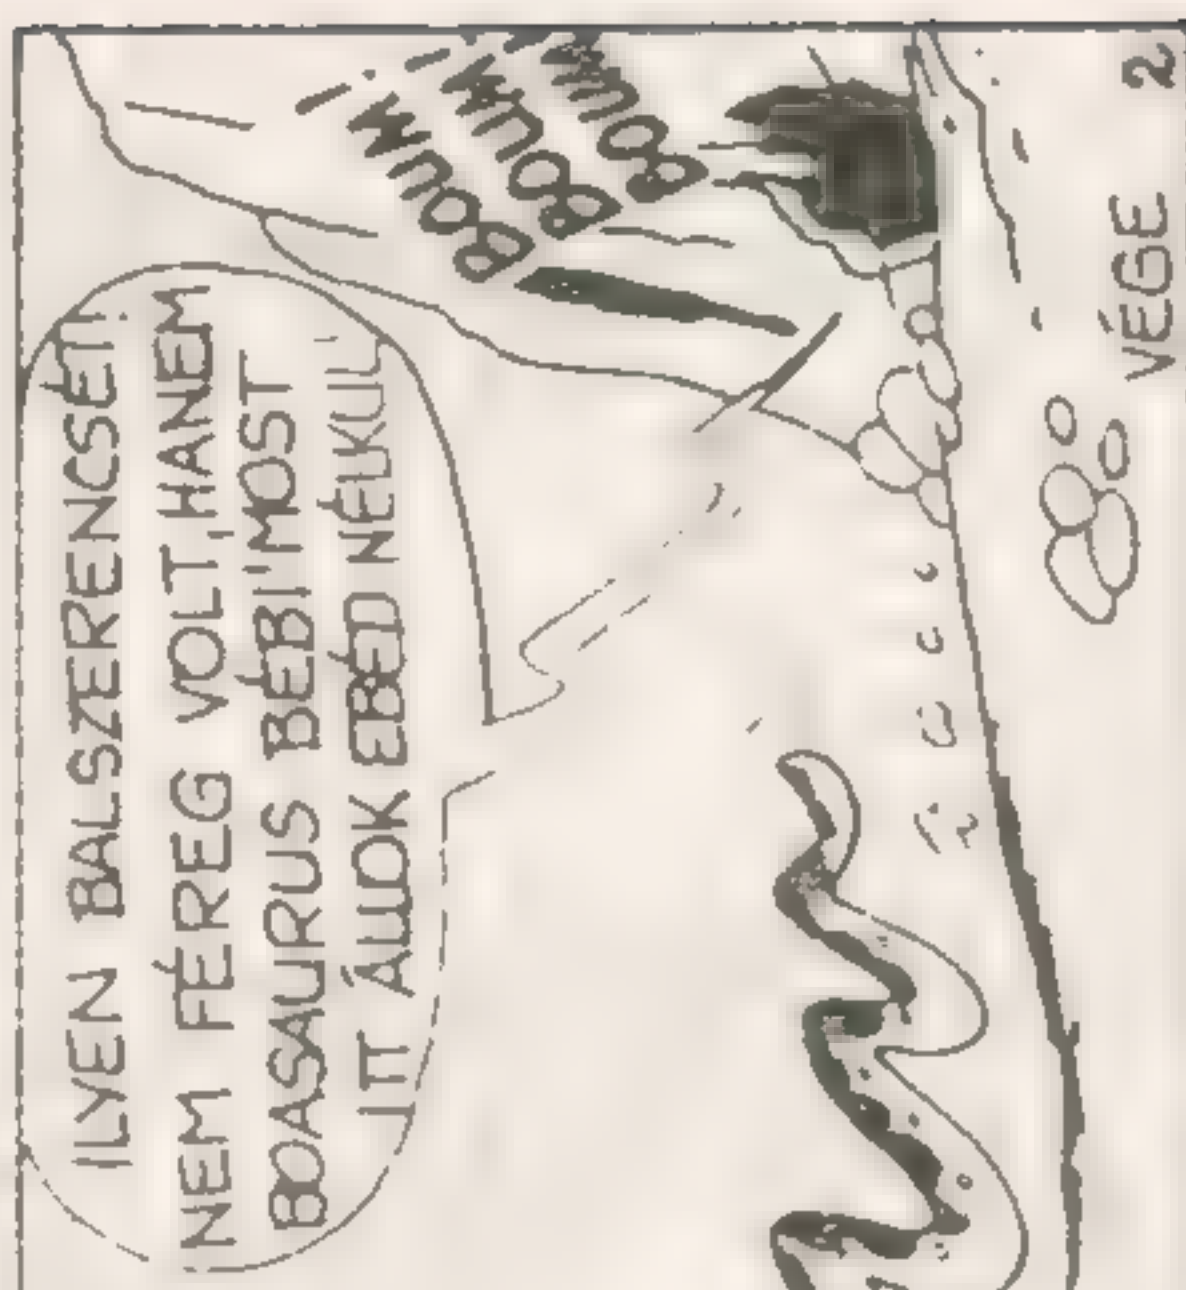 ILYEN BALSZERENCSÉT!
NEM FÉREG VOLT, HANEM
BOASAURUS BÉBI! MOST
ITT ÁLLOK EBÉD NÉLKÜL!
BOUM!
BOUM!
BOUM
VÉGE 2